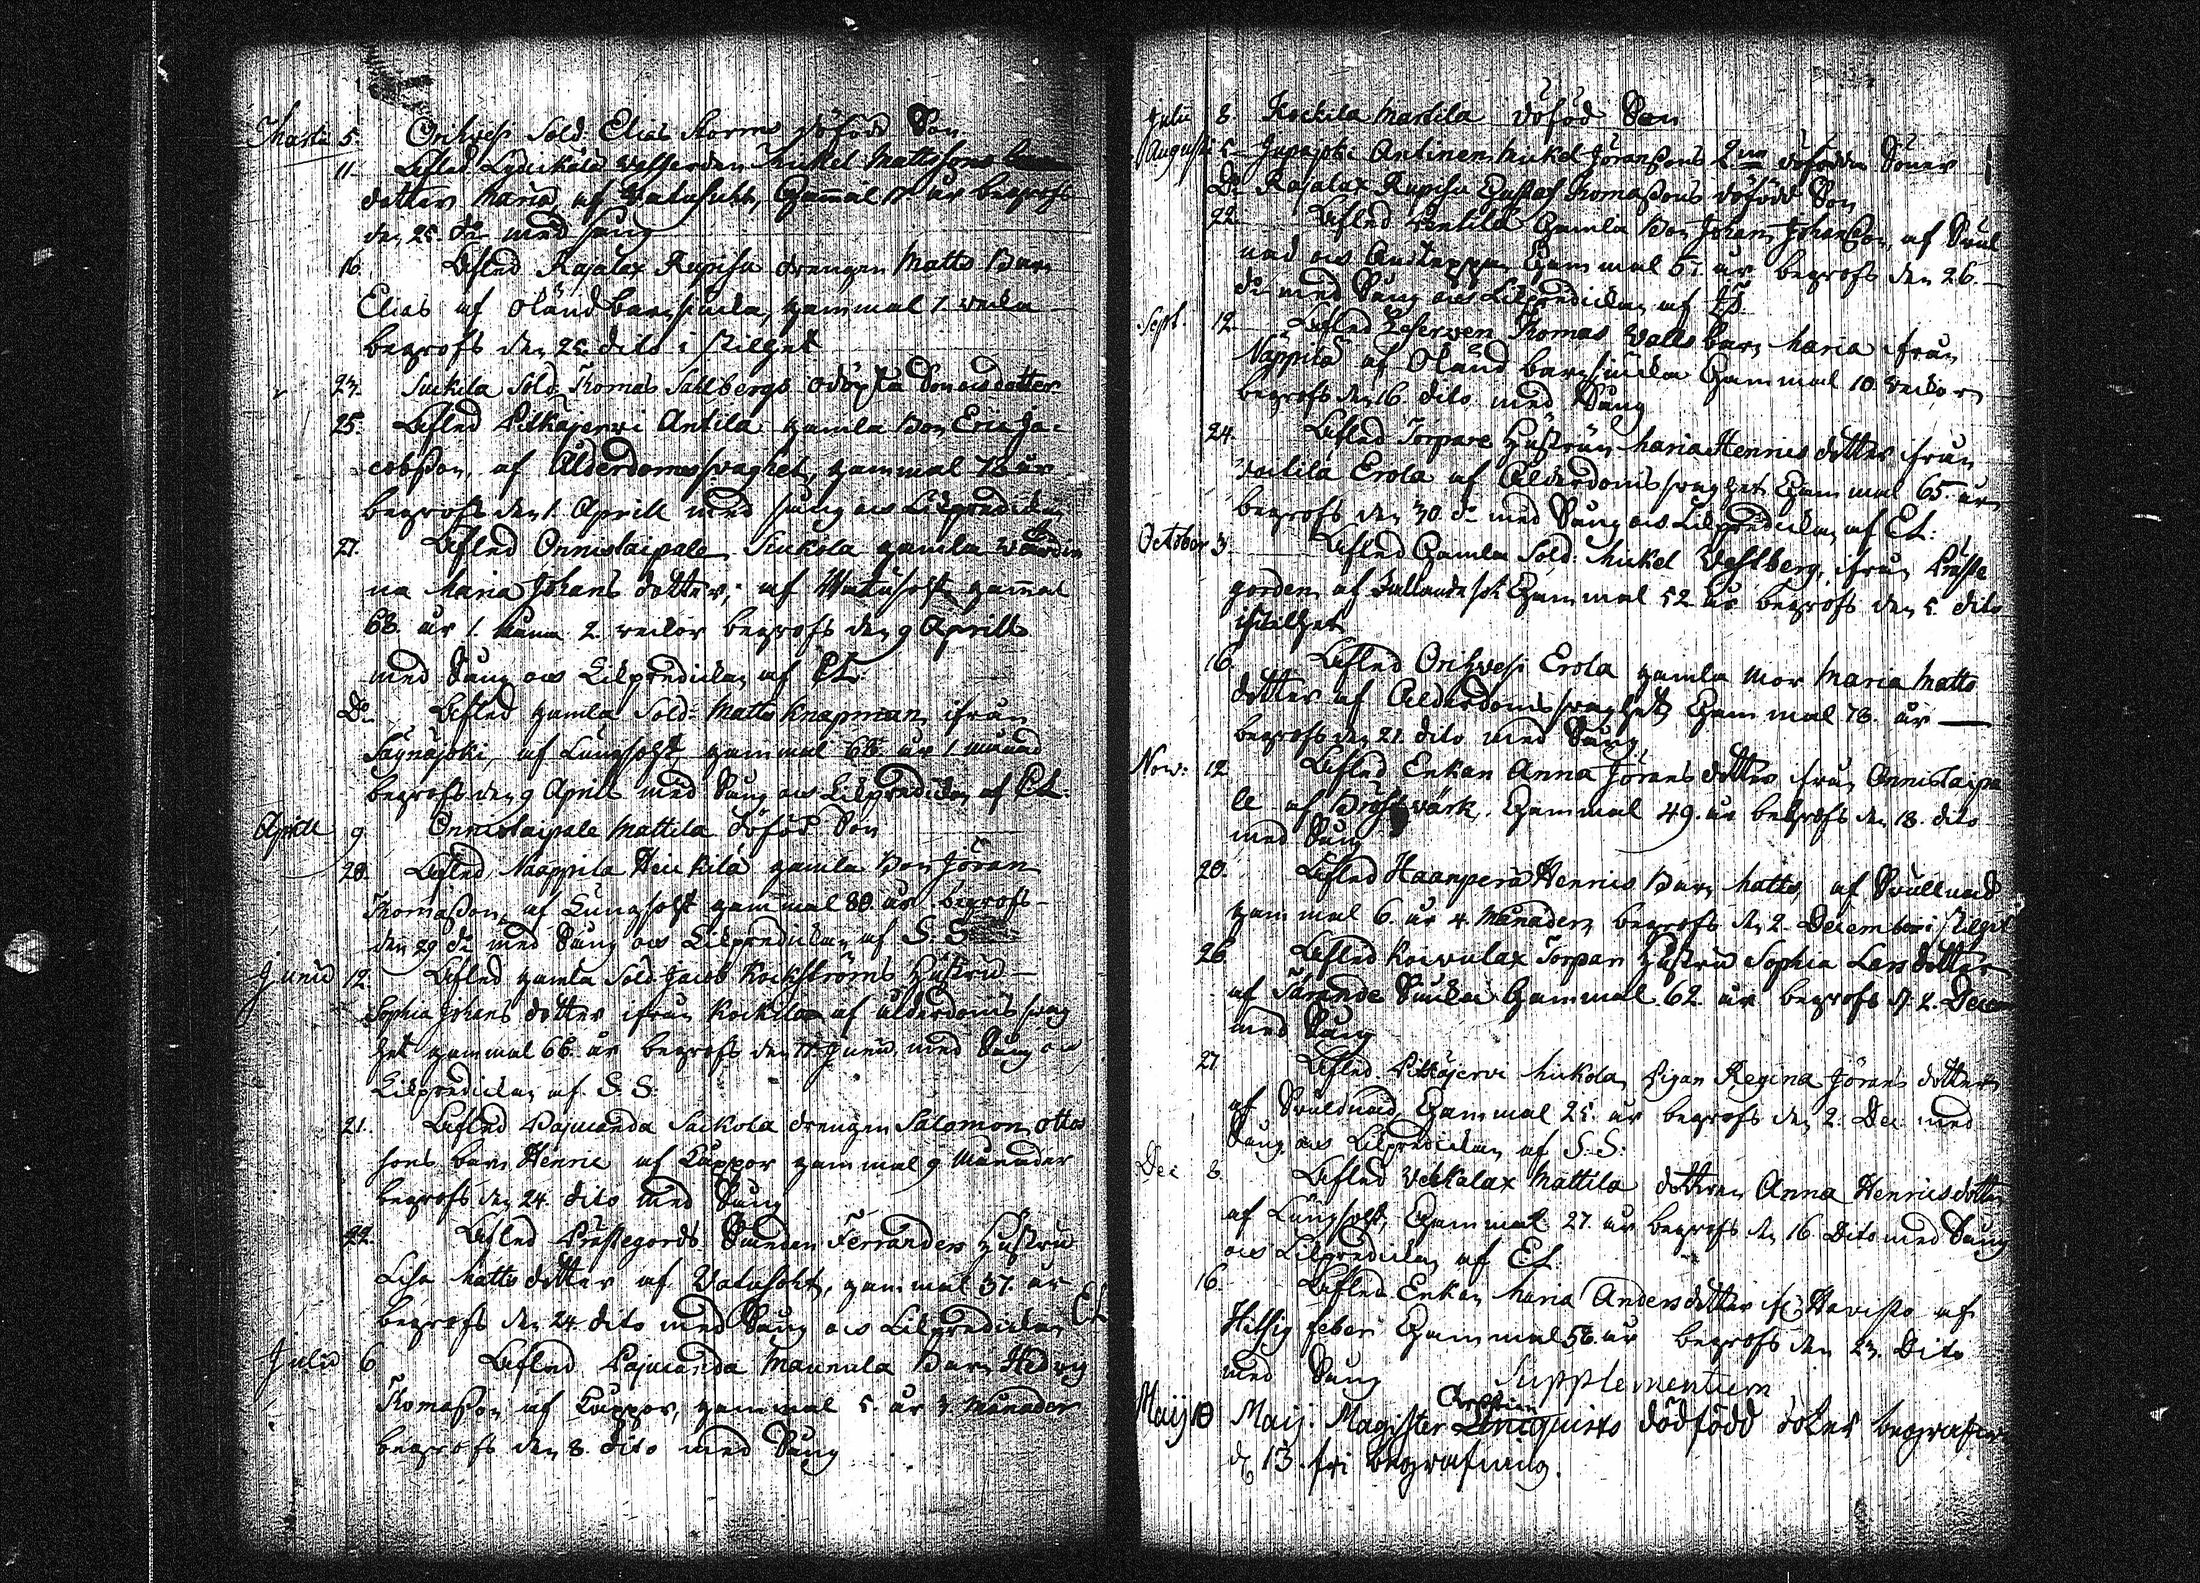 Martii 5. Orihvesi Sold. Elias Storms döfödd Son
11. Afled Lyseikälä Matts Mickel Mattssons
dotter Maria, af Watusukt, Gammal 11 år begrofs
den 25. do med sång
16. Afled Rajalax Rupisa drengen Matts Barn
Elias af Oländ barnsiuka, gammal 1. wecka
begrofs den 25. dito i stilhet
23. Suikila Sold. Thomas Sahlbergs odöpta Son och dotter
25. Afled Pitkäjerwi Antila gamla Bon Eric Ja-
cobsson, af Ålderdoms swaghet, gammal 73 år
begrofs den 1. Aprill med sång och Likpredikan
27. Afled Onnistaipale Seikola gamla Wärdin
na Maria Johans dotter; af Watusot gammal
68. år 1. månad 2. weckor begrofs den 9 Aprill
med Sång och Likpredikan af EL.
Do Afled gamla Sold. Matts Knapman ifrån
Säynäjoki, af Lungsoht, gammal 68 år 1. månad
begrofs den 9 April med Sång och Likpredikan af EL.
Aprill 9. Onnistaipale Mattila döföd Son
20. Afled Näappila Heikilä gamla Bon Jöran
Thomasson af Lungsoht gammal 80. år begrofs
den 29 do med Sång och Likpredikan af S. S.
Junii 12. Afled gamla Sold. Jacob Rockströms Hustru
Sophia Johans dotter ifrån Rockila af ålderdoms swag
het gammal 66. år begrofs den 17. Junii med Sång och
Likpredikan af S. S.
21. Afled Pajuranda Seikola drengen Salomon Otts
sons barn Henric af Kåppor gammal 9 Månader
begrofs den 24. dito med Sång
22. Afled Prästegårds Smeden Ferranders Hustru
Lisa Matts dotter af Watusoht, gammal 37. år
begrofs den 24. dito med Sång och Likpredikan EL
Julii 6 Afled Pajuranda Maunula Barn Hedvig
Thomasson af Kåppor, gammal 5 år 3 Månader
begrofs den 8. dito med Sång
Julii 8. Kockila Martila döföd Son
Augusti 5. Antinen Mickel Jöranssons 2ne döfödda Söner
Do Rajalax Rupisa Gustaf Thomassons döfödd Son
22. Afled Pentilä Gamla Bon Johan Johansson, af Swul
nad och Gammal 57. år begrofs den 26.
do med Sång och Likpredikan af
Sept. 12. Afled Thomas Walls barn Maria ifrån
Näppilä af Oländ barnsiuka Gammal 10. weckor
begrofs den 16. dito med Sång
24. Afled Torpare Hustrun Maria Henrics dotter ifrån
Erola af Ålderdoms swaghet Gammal 65. år
begrofs den 30. do med Sång och Likpredikan af EL.
October 3. Afled Gamla Sold. Mickel Westberg, ifrån Präste
gården af Fallande sot Gammal 52. år begrofs den 5. dito
i stilhet
16. Afled Orihvesi Erola gamla Mor Maria Matts
dotter af Ålderdoms swaghet Gammal 78. år
begrofs den 21. dito med Sång
Now: 12 Afled Enkan Anna Jörans dotter ifrån Onnistaipa
le af Bröstwärk, Gammal 49. år begrofs den 18. dito
med Sång
20. Afled Haanperä Henrics Barn Matts, af Swullnad
gammal 6. år 4. Månader begrofs den 2. December i stilhet
26. Afled Koivulax Torpare Hustru Sophia Lars dotter
af Tärande Siuka Gammal 62. år begrofs d. 2. Decem
med Sång
27 Afled Pitkäjervi Mickola Pigan Regina Jörans dotter
af Swullnad, Gammal 25. år begrofs den 2. Dec. med
Sång och Likpredikan af S. S.
Dec 8. Afled Wekkalax Mattila dottren Anna Henrics dotter
af Lungsoht, Gammal 27. år begrofs den 16. Dito med Sång
och Likpredikan af EL.
16. Afled Enkan Maria Anders dotter fr. Havisto af
Hitsig feber Gammal 56. år begrofs den 23. Dito
med Sång
Supplementum
Maij 10 Maij. Magister Christian dödfödd doter begrafven
d. 13. fri begrafning.